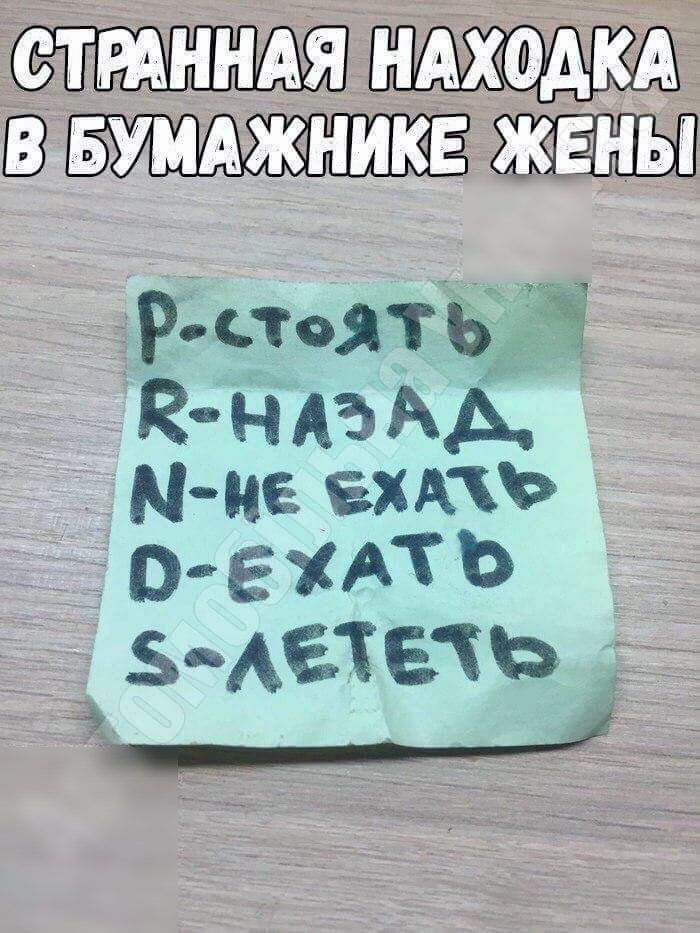 СТРАННАЯ НАХОДКА
В БУМАЖНИКЕ ЖЕНЫ
P-СТОЯТЬ
R-НАЗАД
N-НЕ ЕХАТЬ
D-ЕХАТЬ
S-ЛЕТЕТЬ